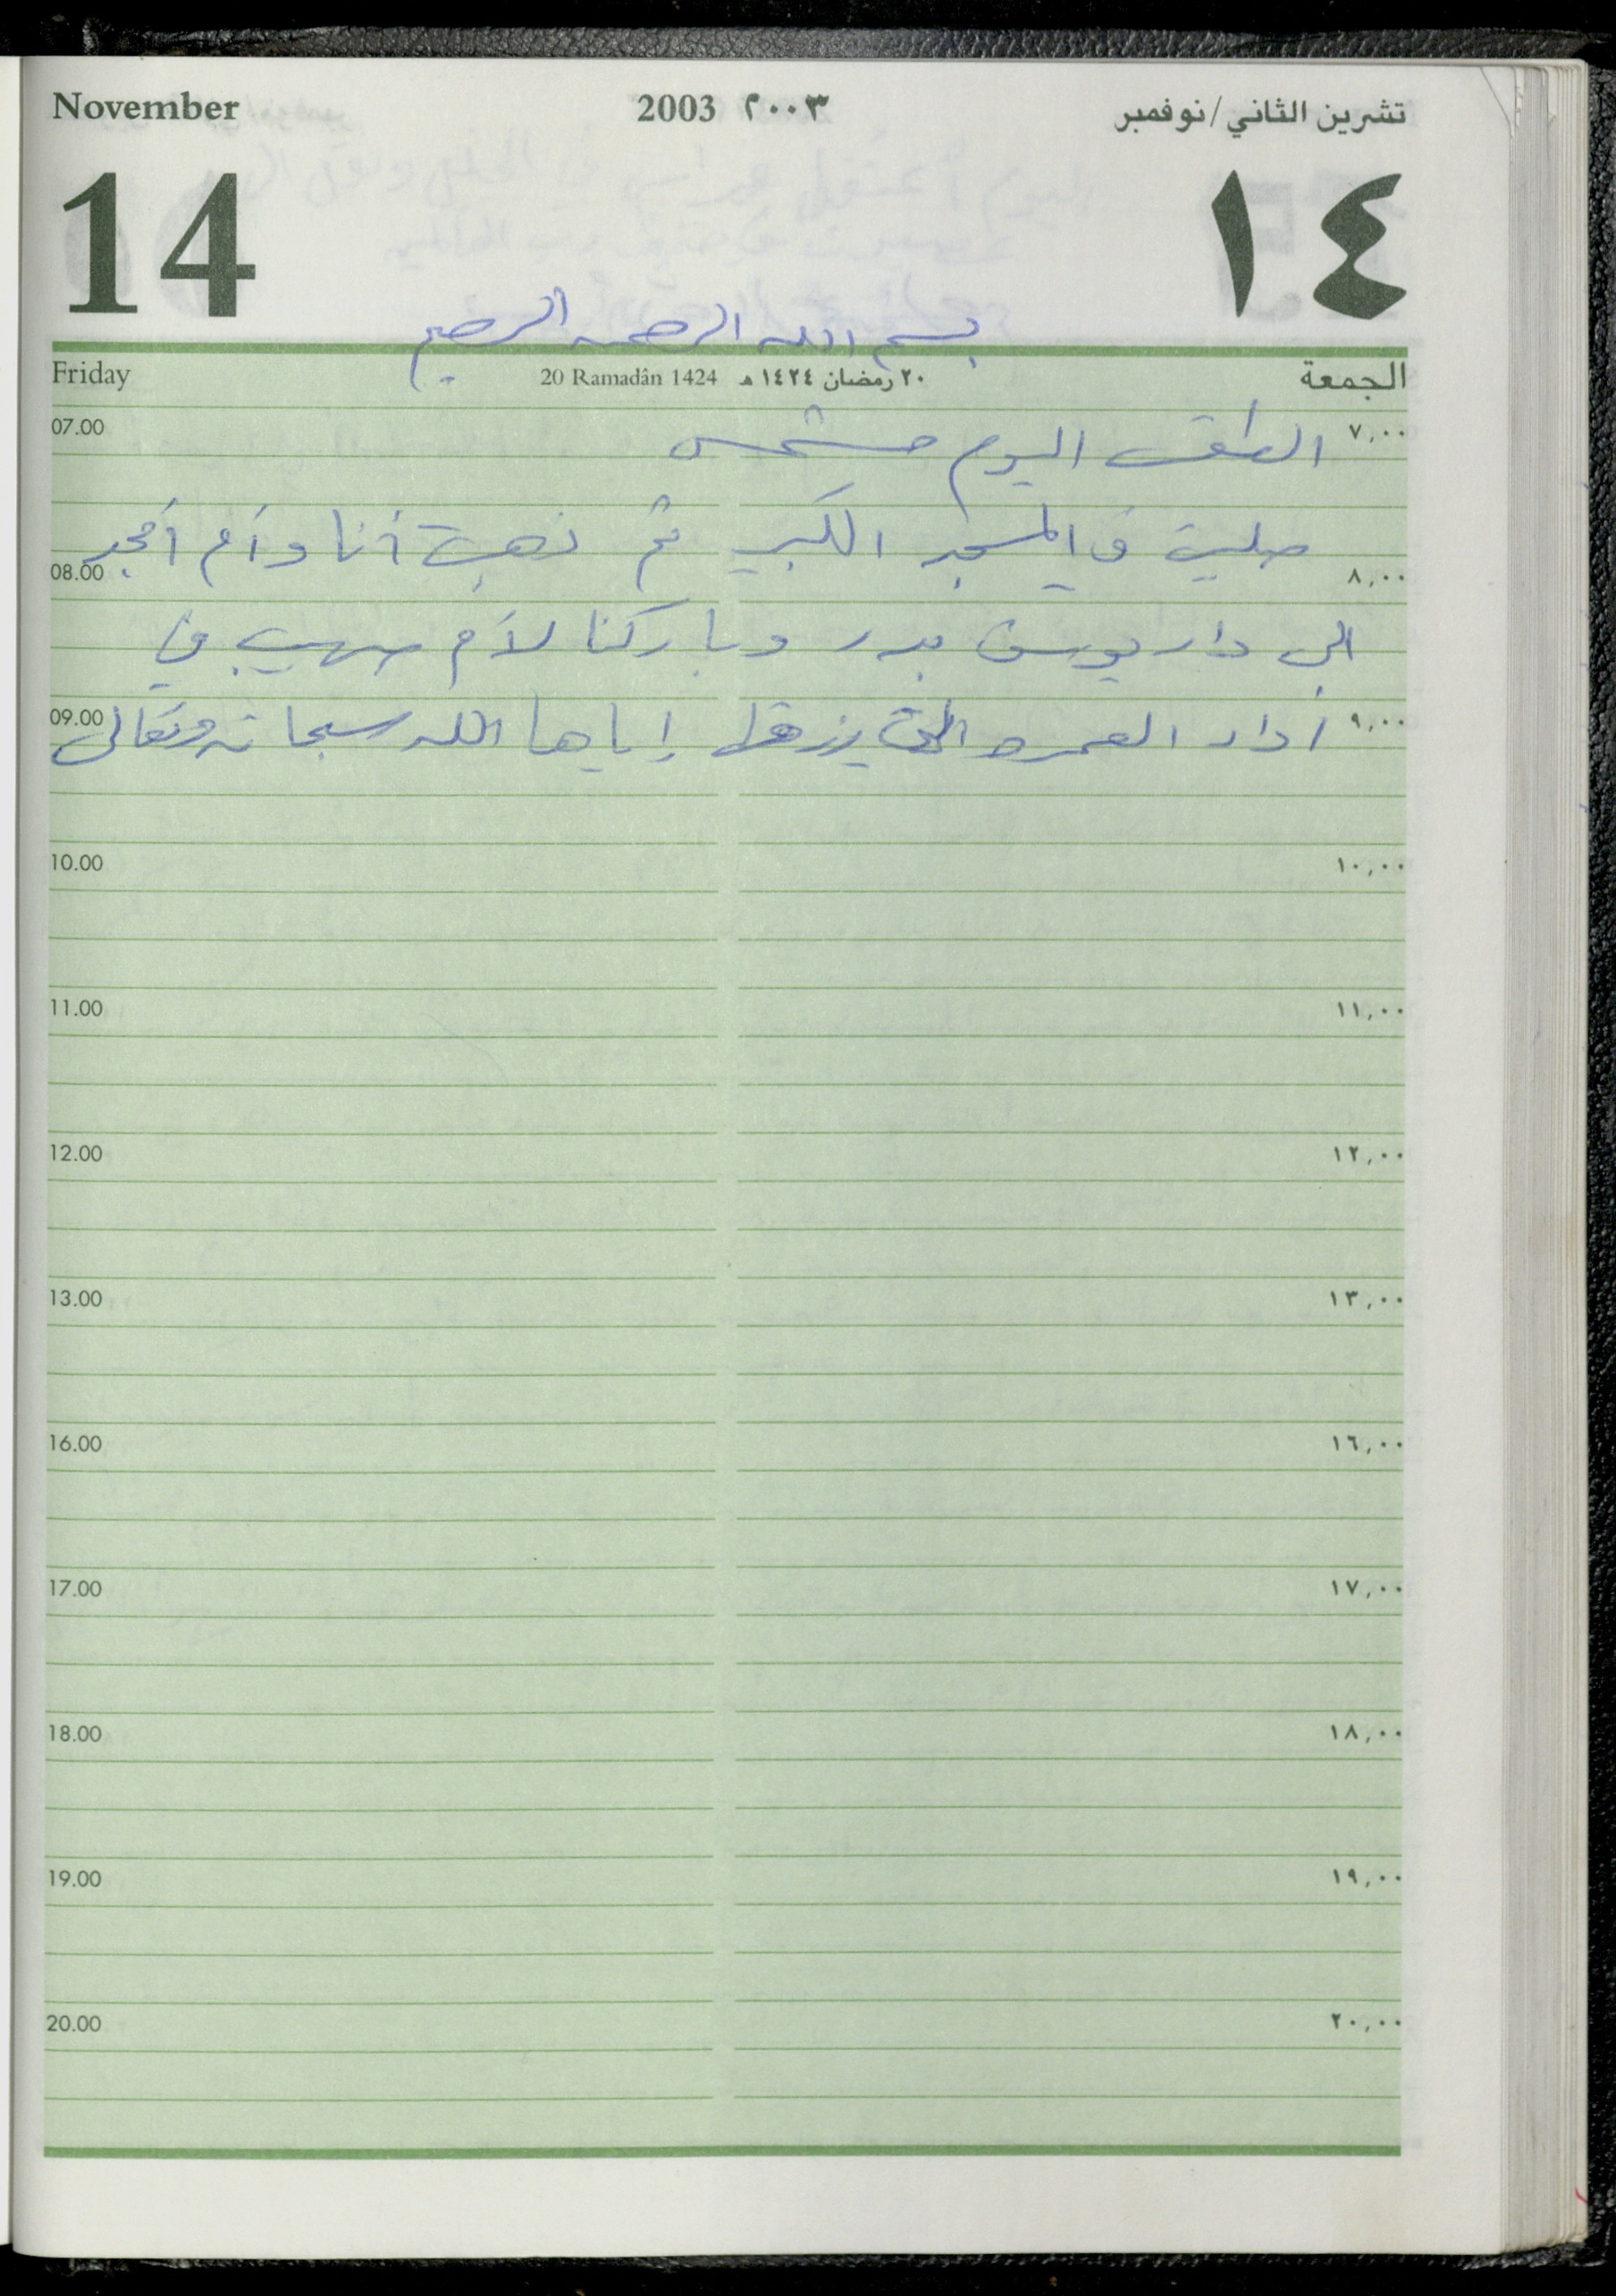 November 2003 ٢٠٠٣ تشرين الثاني/نوفمبر
14 ١٤
بسم الله الرحمن الرحيم
Friday 20 Ramadân 1424 ٢٠ رمضان ١٤٢٤ هـ الجمعة
07.00 ٧,٠٠
الطقس اليوم مشمس
صليت في المسجد الكبير ثم ذهبت أنا وأم أمجد
08.00 ٨,٠٠
الى دار يوسف بدر وباركنا لأم صهيب في
09.00 ٩,٠٠
أداء العمرة التي رزقها إياها الله سبحانه وتعالى
10.00 ١٠,٠٠
11.00 ١١,٠٠
12.00 ١٢,٠٠
13.00 ١٣,٠٠
16.00 ١٦,٠٠
17.00 ١٧,٠٠
18.00 ١٨,٠٠
19.00 ١٩,٠٠
20.00 ٢٠,٠٠